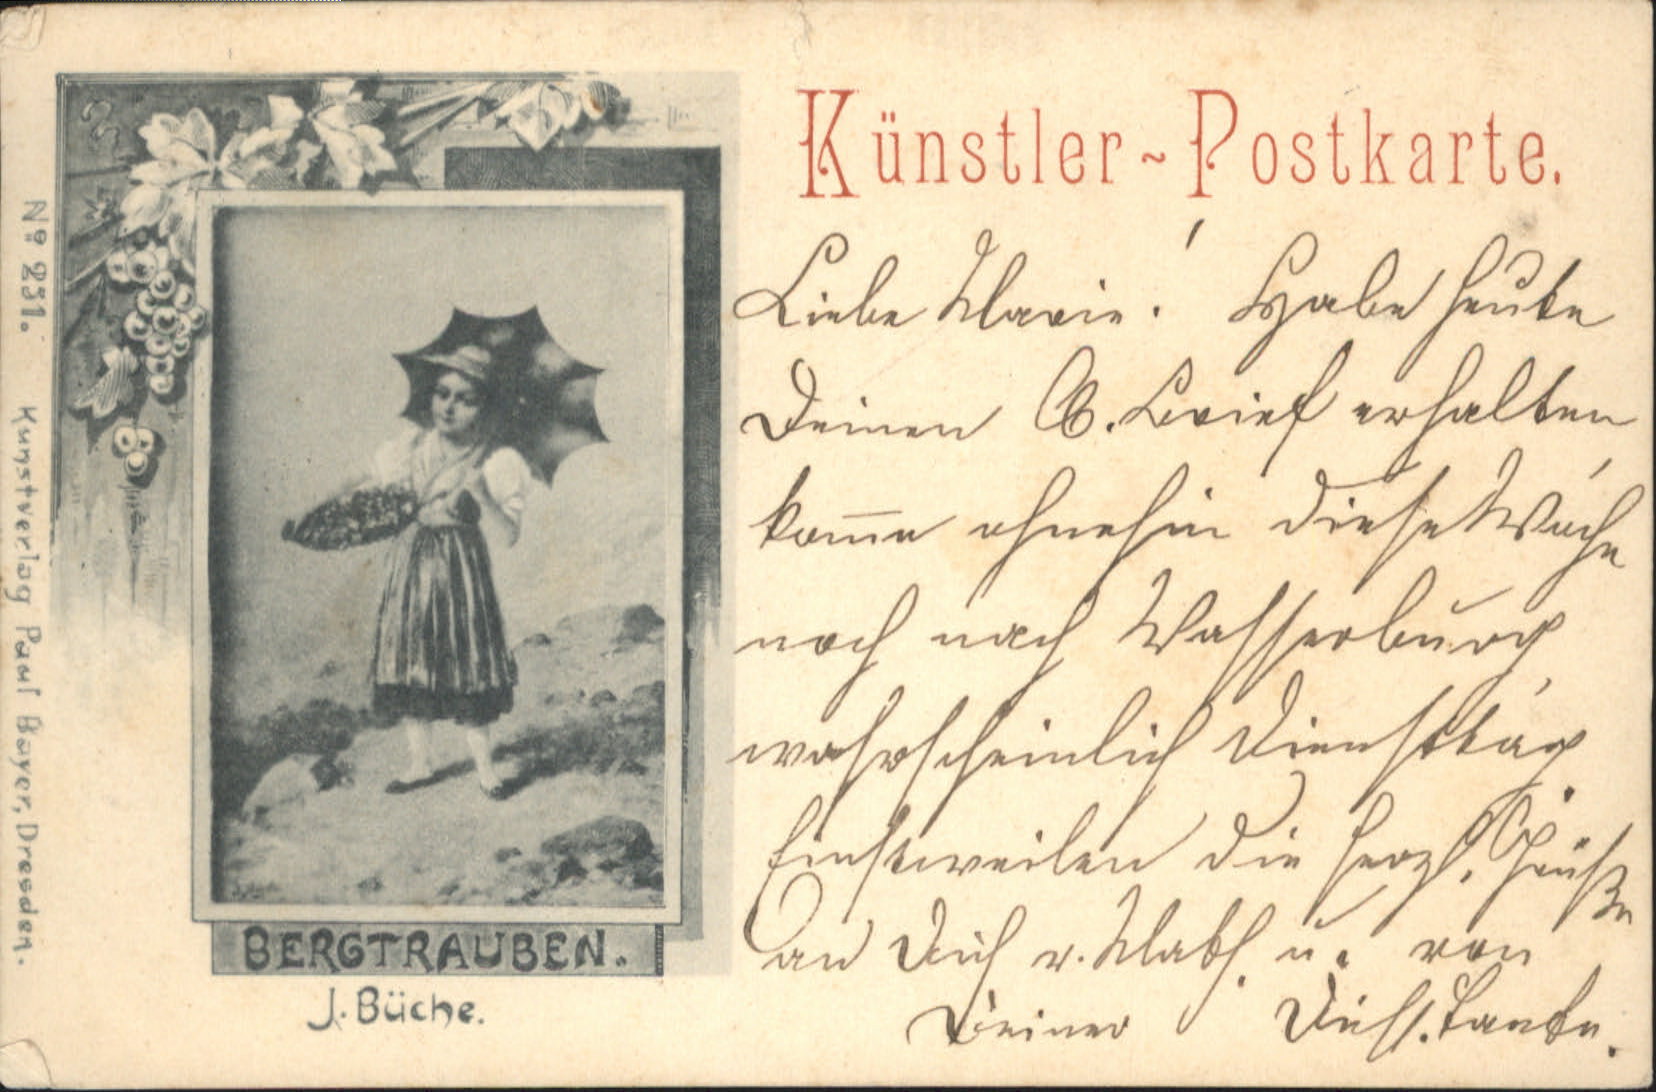 Künstler-Postkarte.
Liebe Marie! Habe heute
Deinen lb. Brief erhalten
kom̅e ohnehin diese Woche
noch nach Wasserburg
wahrscheinlich Dienstag.
Einstweilen die herzl. Grüße
an Dich u. von
Deiner Tante.
BERGTRAUBEN.
J. Büche.
Nº 251. Kunstverlag Paul Bayer, Dresden.